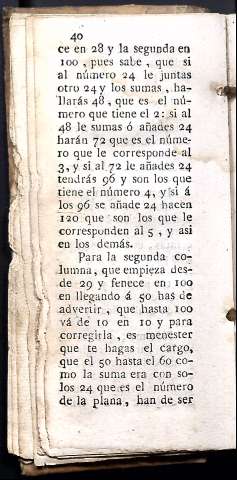 40
ce en 28 y la segunda en
100 , pues sabe , que si
al número 24 le juntas
otro 24 y los sumas , ha-
llarás 48 , que es el nú-
mero que tiene el 2: si al
48 le sumas ó añades 24
harán 72 que es el núme-
ro que le corresponde al
3, y si al 72 le añades 24
tendrás 96 y son los que
tiene el número 4, y si á
los 96 se añade 24 hacen
120 que son los que le
corresponden al 5 , y asi
en los demás.
Para la segunda co-
lumna, que empieza des-
de 29 y fenece en 100
en llegando á 50 has de
advertir , que hasta 100
vá de 10 en 10 y para
corregirla , es menester
que te hagas el cargo,
que el 50 hasta el 60 co-
mo la suma era con so-
los 24 que es el número
de la plana, han de ser